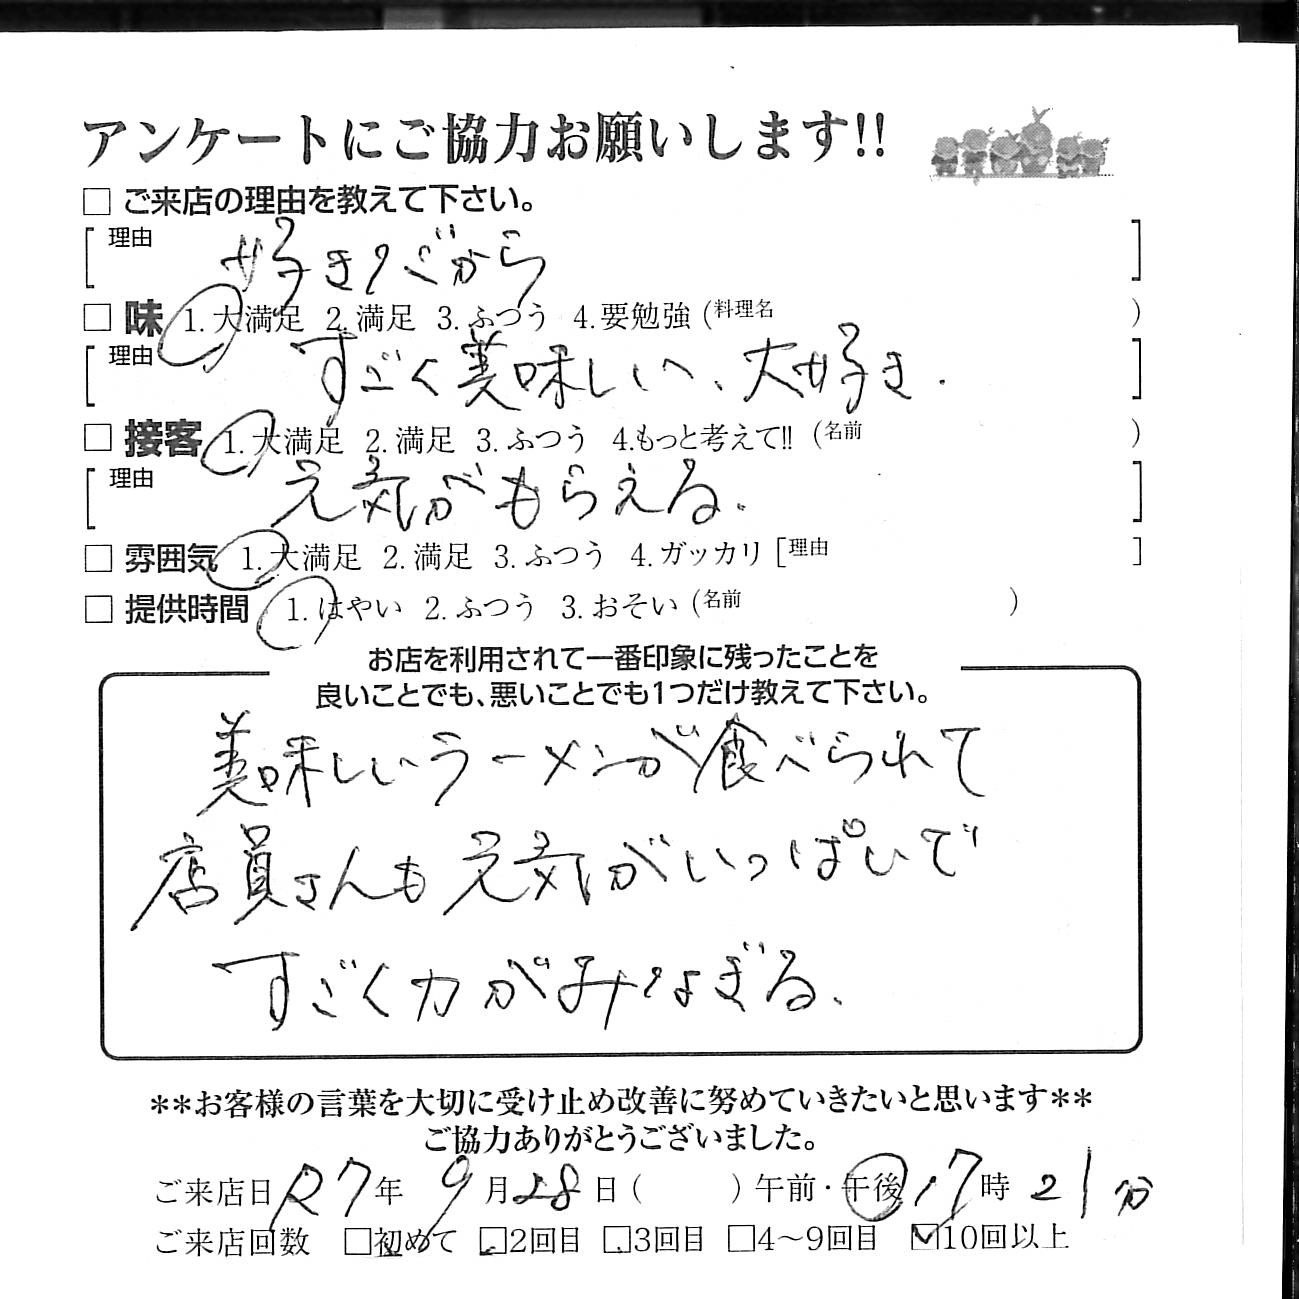 アンケートにご協力お願いします!!
□ ご来店の理由を教えて下さい。
[理由 好きだから ]
□ 味 1.大満足 2.満足 3.ふつう 4.要勉強 (料理名 )
[理由 すごく美味しい、大好き. ]
□ 接客 1.大満足 2.満足 3.ふつう 4.もっと考えて!! (名前 )
[理由 元気がもらえる. ]
□ 雰囲気 1.大満足 2.満足 3.ふつう 4.ガッカリ [理由 ]
□ 提供時間 1.はやい 2.ふつう 3.おそい (名前 )
お店を利用されて一番印象に残ったことを
良いことでも、悪いことでも1つだけ教えて下さい。
美味しいラーメンが食べられて
店員さんも元気がいっぱいで
すごく力がみなぎる.
**お客様の言葉を大切に受け止め改善に努めていきたいと思います**
ご協力ありがとうございました。
ご来店日 R7年 9月28日 ( ) 午前・午後 17時 21分
ご来店回数 □初めて □2回目 □3回目 □4〜9回目 ☑10回以上